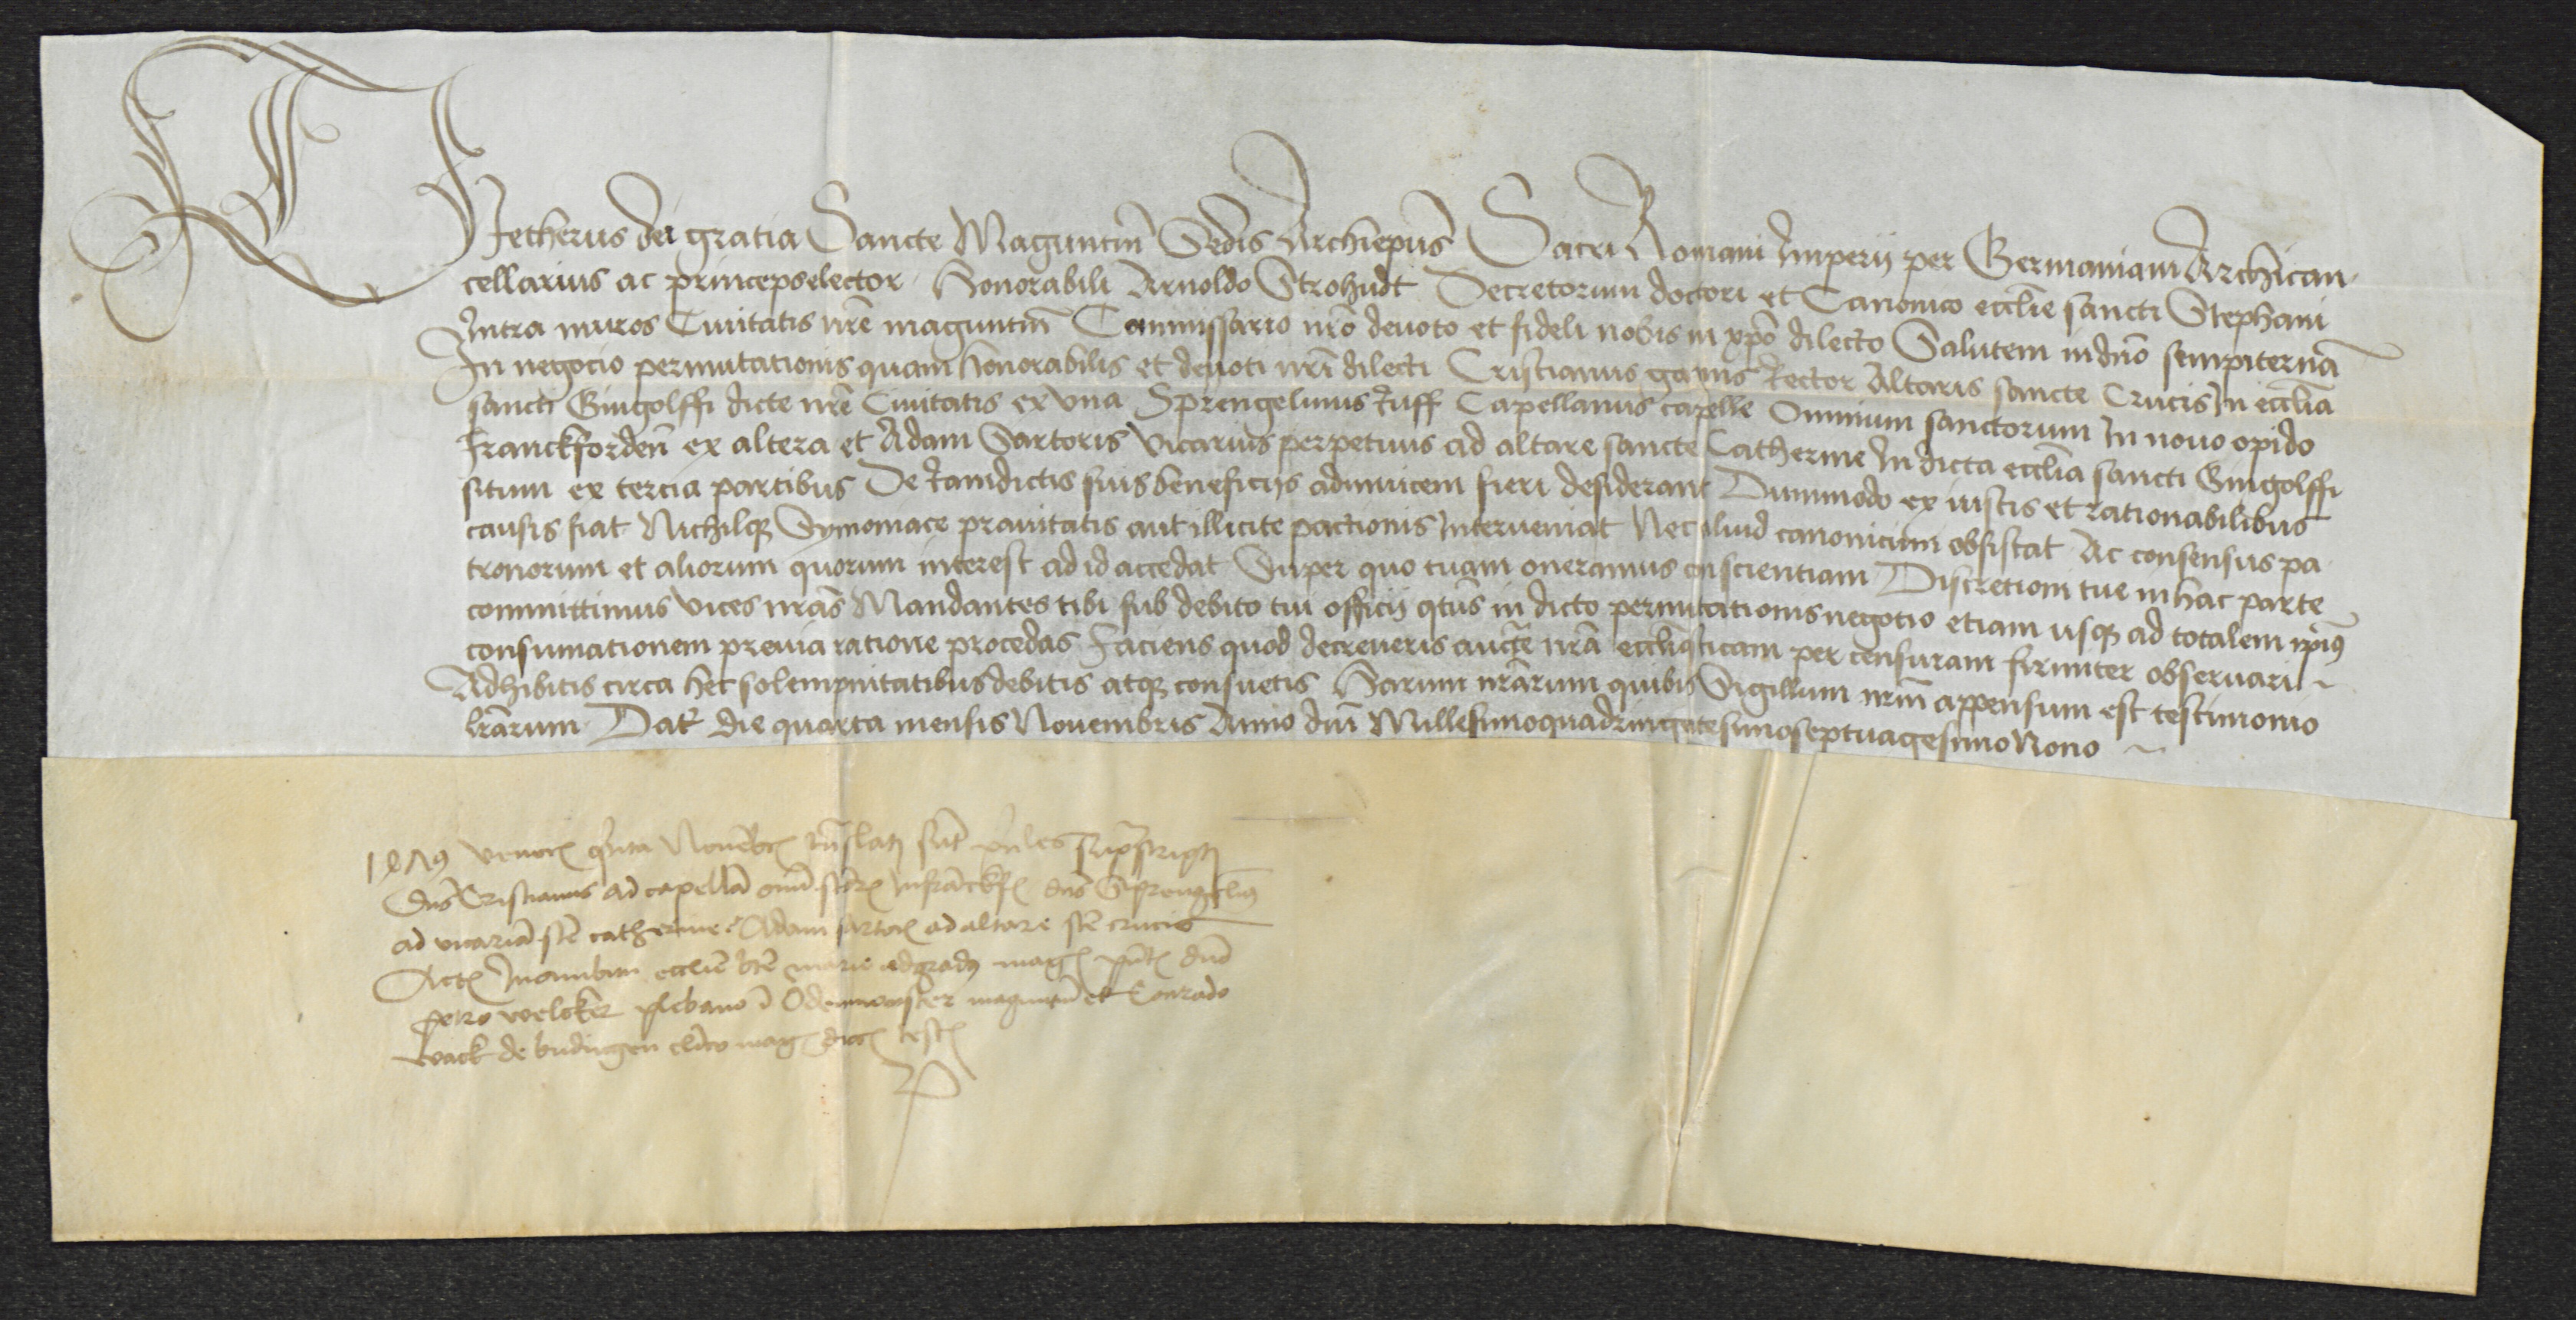 Dietherus dei gratia Sancte Maguntiñ Sedis Archiepūs Sacri Romani Imperij per Germaniam Archican-
cellarius ac princepselector Honorabili Arnoldo Strohudt Decretorum doctori et Canonico ecclīe sancti Stephani
Intra muros Ciuitatis nrē maguntiñ Commissario nrō deuoto et fideli nobis in xpō dilecto Salutem in dnō sempiternā
In negocio permutationis quam honorabilis et deuoti nrī dilecti Cristianus gauns Rector Altaris sancte Crucis In ecclīa
sancti Gingolffi dicte nrē Ciuitatis ex vna Sprengelinus Ruff Capellanus capelle Omnium sanctorum In nouo opido
Franckforden̄ ex altera et Adam Sartoris Vicarius perpetuus ad altare sancte Catherine In dicta ecclīa sancti Gingolffi
situm ex tercia partibus De Iamdictis suis beneficijs adinuicem fieri desiderant Dummodo ex iustis et rationabilibus
causis fiat Nichilqꝫ Symoniace prauitatis aut illicite pactionis Interueniat Nec aliud canonicum obsistat Ac consensus pa
tronorum et aliorum quorum interest ad id accedat Super quo tuam oneramus conscientiam Discretioni tue in hac parte
committimus vices nrās Mandantes tibi sub debito tui officij qtūs in dicto permutationis negotio etiam usqꝫ ad totalem ipīus
consumationem preuia ratione procedas Faciens quod decreueris aucte nrā ecclīasticam per censuram firmiter obseruari
Adhibitis circa hec solempnitatibus debitis atqꝫ consuetis Harum nrārum quibus Sigillum nrm̄ appensum est testimonio
lrārum Dat̄ die quarta mensis Nouembris Anno dnī Millesimoquadringentesimoseptuagesimo Nono
1479 veneris qu̇ta Nouēbrꝭ trāslati sūt prī̄les supᵃscripti
dn̄s Cristianus ad capellā om̄ stōrꝭ In franckfꝭ dn̄s Sprengelinꝰ
ad vicariā stē catherine Adam sartorꝭ ad altare stē crucis
Actꝭ In ambitu ecclīe btē marie adgradꝰ magꝭ pn̄tꝭ dn̄o
petro welcker plebano ī Odenmonster magunti𝑛̄ et Conrado
wack de budingen clīco magꝭ diocꝭ testꝭ